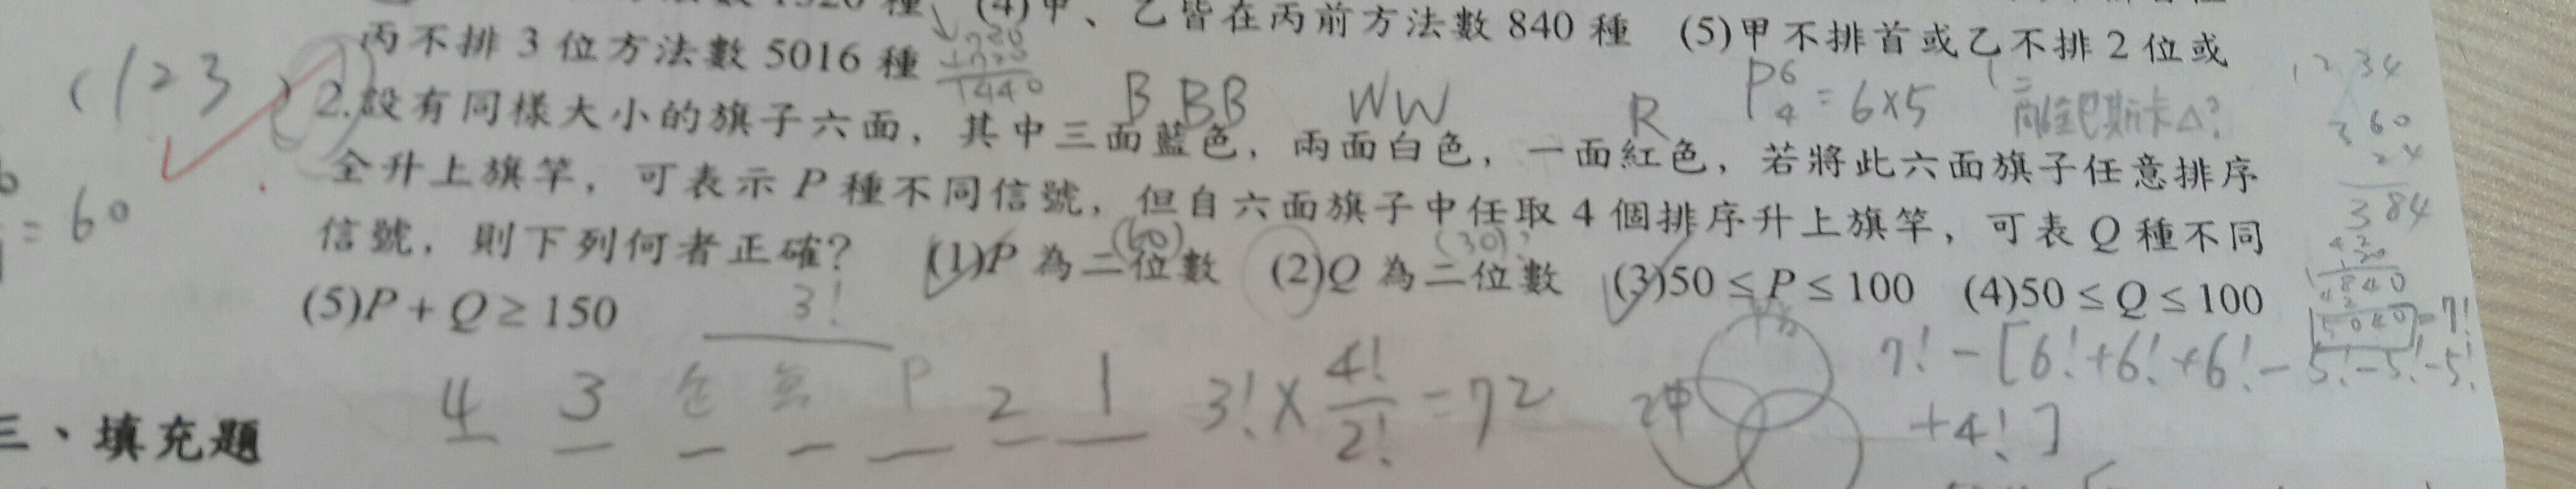 (4)甲、乙皆在丙前方法數 840 種 (5)甲不排首或乙不排 2 位或
丙不排 3 位方法數 5016 種
1440
(123)
B BB WW R
P⁶₄ = 6×5
1 2 34
2.設有同樣大小的旗子六面，其中三面藍色，兩面白色，一面紅色，若將此六面旗子任意排序
360
24
384
全升上旗竿，可表示 P 種不同信號，但自六面旗子中任取 4 個排序升上旗竿，可表 Q 種不同
= 60
(60) (30)?
信號，則下列何者正確？ (1)P 為二位數 (2)Q 為二位數 (3)50 ≤ P ≤ 100 (4)50 ≤ Q ≤ 100
(5)P + Q ≥ 150
840
5040 = 7!
3!
4 3 P 2 1 3! × 4!/2! = 72
7! − [6! + 6! + 6! − 5! − 5! − 5!
+ 4! ]
三、填充題